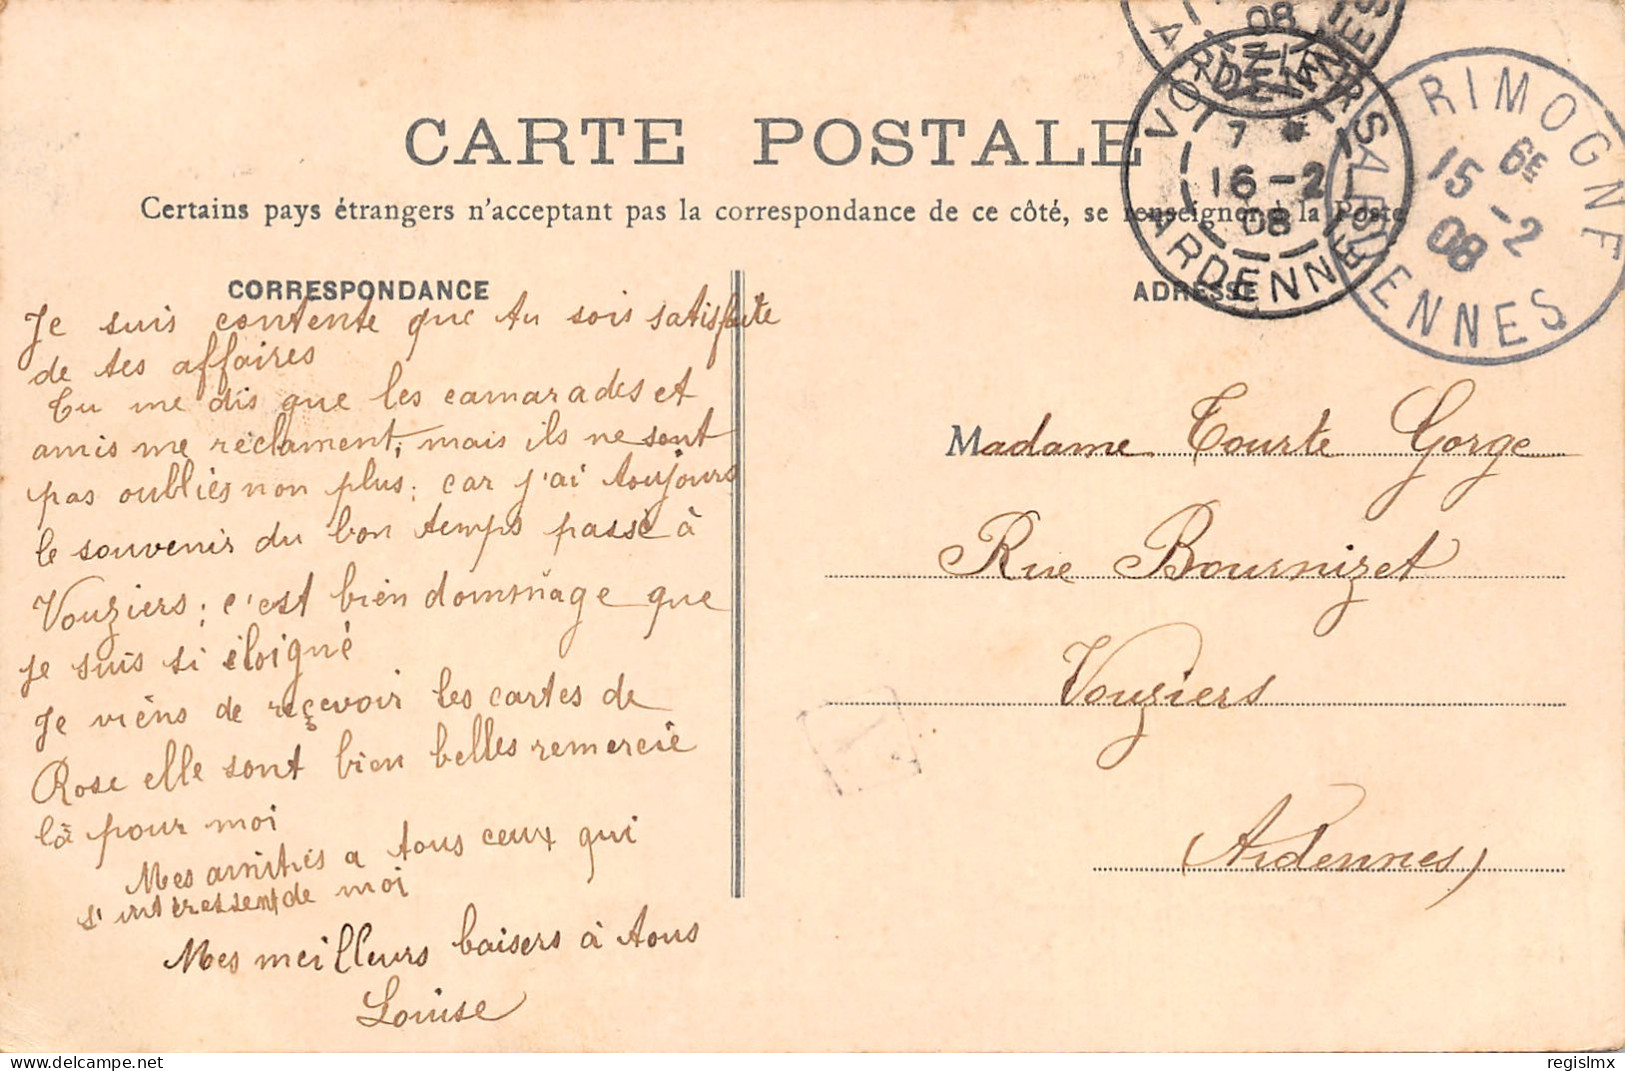 CARTE POSTALE
Certains pays étrangers n'acceptant pas la correspondance de ce côté, se renseigner à la Poste
CORRESPONDANCE
Je suis contente que tu sois satisfaite
de tes affaires
Tu me dis que les camarades et
amis me réclament, mais ils ne sont
pas oubliés non plus; car j'ai toujours
le souvenir du bon temps passé à
Vouziers; c'est bien dommage que
je suis si éloigné
Je viens de reçevoir les cartes de
Rose elle sont bien belles remercie
là pour moi
Mes amitiés a tous ceux qui
s'intéressent de moi
Mes meilleurs baisers à tous
Louise
ADRESSE
Madame Tourte Gorge
Rue Bournizet
Vouziers
(Ardennes)
VOUZIERS
7 *
16 - 2
08
ARDENNES
08
ARDENNES
RIMOGNE
6E
15 - 2
08
ARDENNES
T
delcampe.net
regislmx